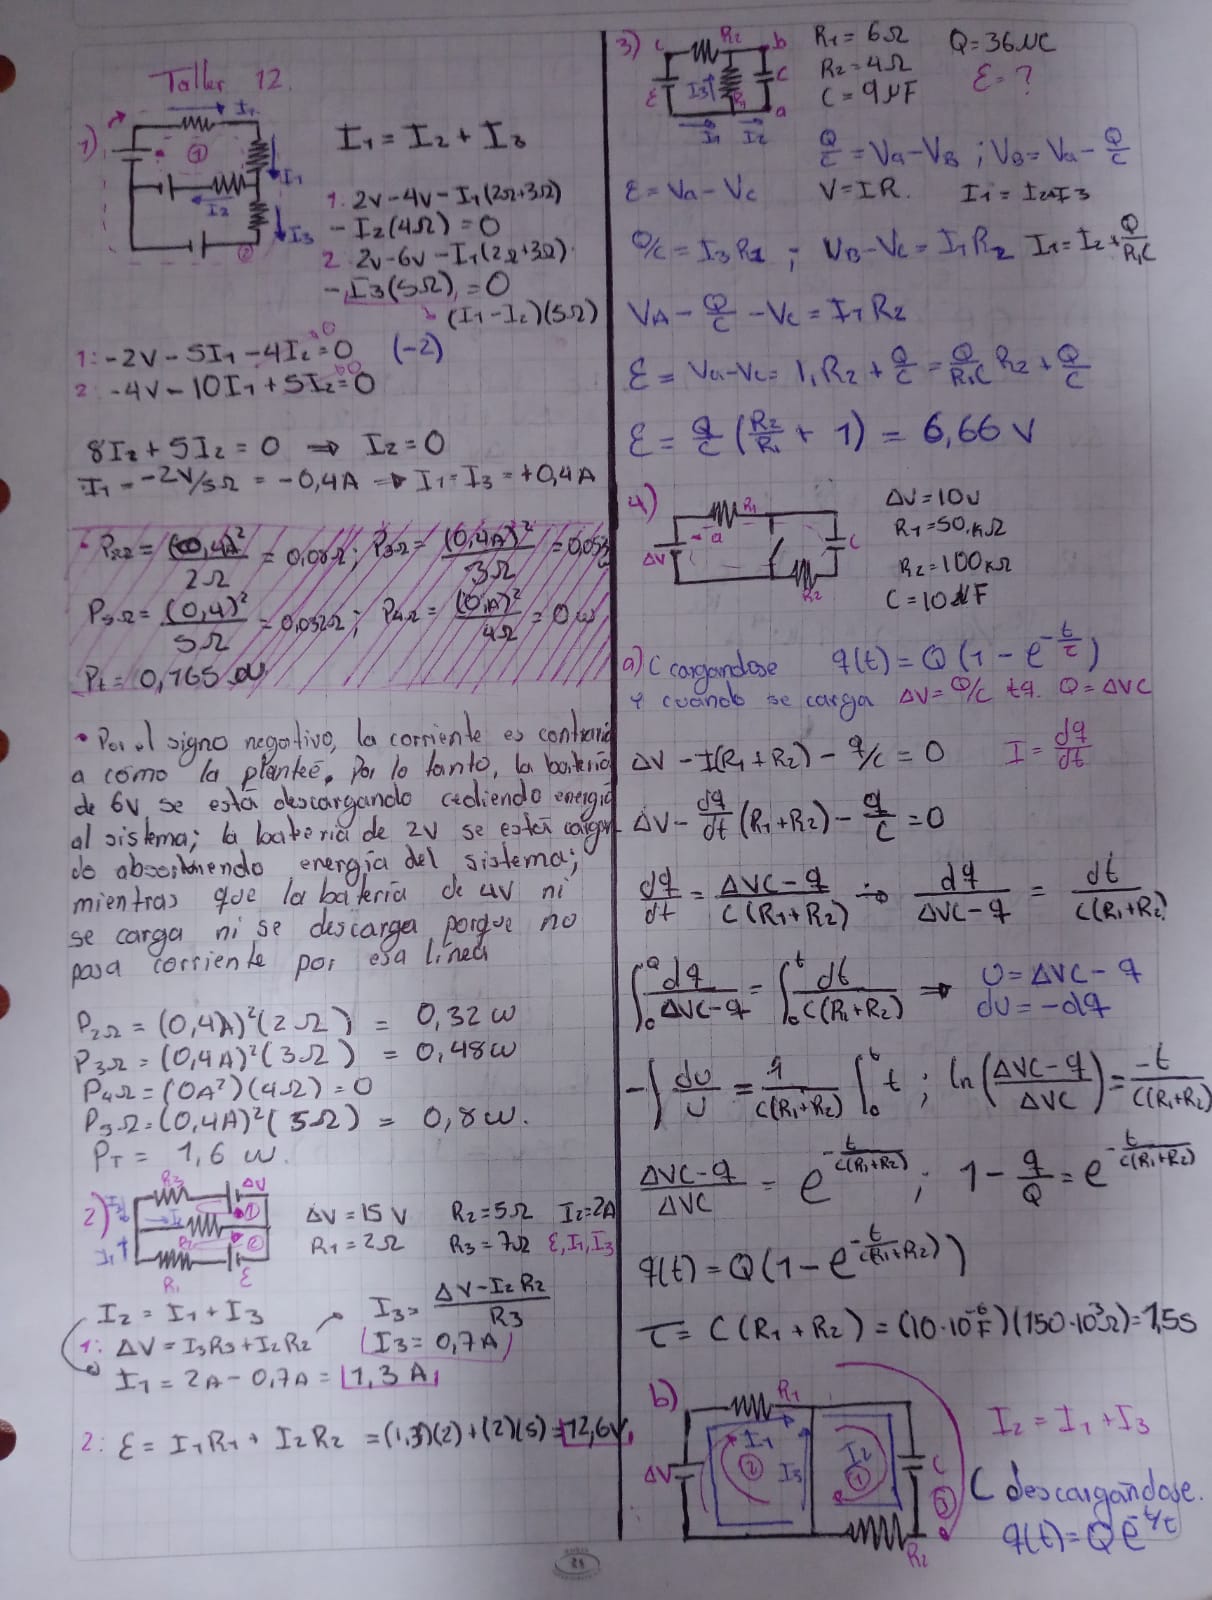 Taller 12.
1)
I₁
①
I₁
I₂
I₃
②
I₁ = I₂ + I₃
1: 2v - 4v - I₁(2Ω+3Ω)
- I₂(4Ω) = 0
2 2v - 6v - I₁(2Ω+3Ω)
- I₃(5Ω) = 0
(I₁ - I₂)(5Ω)
1: -2V - 5I₁ - 4I₂ = 0 (-2)
2: -4V - 10I₁ + 5I₂ = 0
8I₂ + 5I₂ = 0 ⇒ I₂ = 0
I₁ = -2V/5Ω = -0,4A → I₁ = I₃ = +0,4A
P₂Ω = (0,4A)²/2Ω = 0,08Ω; P₃Ω = (0,4A)²/3Ω = 0,053
P₅Ω = (0,4)²/5Ω = 0,032Ω; P₄Ω = (0A)²/4Ω = 0w
Pt = 0,165 W
• Por el signo negativo, la corriente es contraria
a como la planteé, por lo tanto, la batería
de 6v se está descargando cediendo energía
al sistema; la batería de 2v se está cargan-
do absorbiendo energía del sistema;
mientras que la batería de 4v ni
se carga ni se descarga porque no
pasa corriente por esa línea
P₂Ω = (0,4A)²(2Ω) = 0,32w
P₃Ω = (0,4A)²(3Ω) = 0,48w
P₄Ω = (0A²)(4Ω) = 0
P₅Ω = (0,4A)²(5Ω) = 0,8w.
PT = 1,6 w.
2)
R₃
ΔV
I₃
I₂
①
R₂
②
I₁
R₁
ε
ΔV = 15 V R₂ = 5Ω I₂ = 2A
R₁ = 2Ω R₃ = 7Ω ε, I₁, I₃
I₂ = I₁ + I₃ I₃ = (ΔV - I₂R₂)/R₃
1: ΔV = I₃R₃ + I₂R₂ I₃ = 0,7A
I₁ = 2A - 0,7A = 1,3 A
2: ε = I₁R₁ + I₂R₂ = (1,3)(2) + (2)(5) = 12,6V
3)
c
R₂
b
ε
I₃
R₁
C
a
I₁ I₂
R₁ = 6Ω Q = 36μC
R₂ = 4Ω ε = ?
C = 9μF
Q/C = Va - VB ; VB = Va - Q/C
ε = Va - Vc V = IR. I₁ = I₂+I₃
Q/C = I₃R₁ ; VB - Vc = I₁R₂ I₁ = I₂ + Q/R₁C
VA - Q/C - Vc = I₁R₂
ε = Va - Vc = I₁R₂ + Q/C = Q/R₁C R₂ + Q/C
ε = Q/C (R₂/R₁ + 1) = 6,66 V
4)
R₁
a
ΔV
C
R₂
ΔV = 10v
R₁ = 50kΩ
R₂ = 100kΩ
C = 10μF
a) C cargandose q(t) = Q(1 - e^(-t/τ))
y cuando se carga ΔV = Q/C tq. Q = ΔVC
ΔV - I(R₁+R₂) - q/C = 0 I = dq/dt
ΔV - dq/dt (R₁+R₂) - q/C = 0
dq/dt = (ΔVC - q)/(C(R₁+R₂)) → dq/(ΔVC - q) = dt/(C(R₁+R₂))
∫₀^Q dq/(ΔVC - q) = ∫₀^t dt/(C(R₁+R₂)) ⇒ U = ΔVC - q
du = -dq
-∫ du/U = 1/(C(R₁+R₂)) ∫₀^t t ; ln((ΔVC - q)/ΔVC) = -t/(C(R₁+R₂))
(ΔVC - q)/ΔVC = e^(-t/(C(R₁+R₂))) ; 1 - q/Q = e^(-t/(C(R₁+R₂)))
q(t) = Q(1 - e^(-t/(C(R₁+R₂))))
τ = C(R₁+R₂) = (10·10⁻⁶F)(150·10³Ω) = 1,5s
b)
R₁
I₁
②
I₃
I₂
①
ΔV
C
③
R₂
I₂ = I₁ + I₃
C descargándose.
q(t) = Q e^(-t/τ)